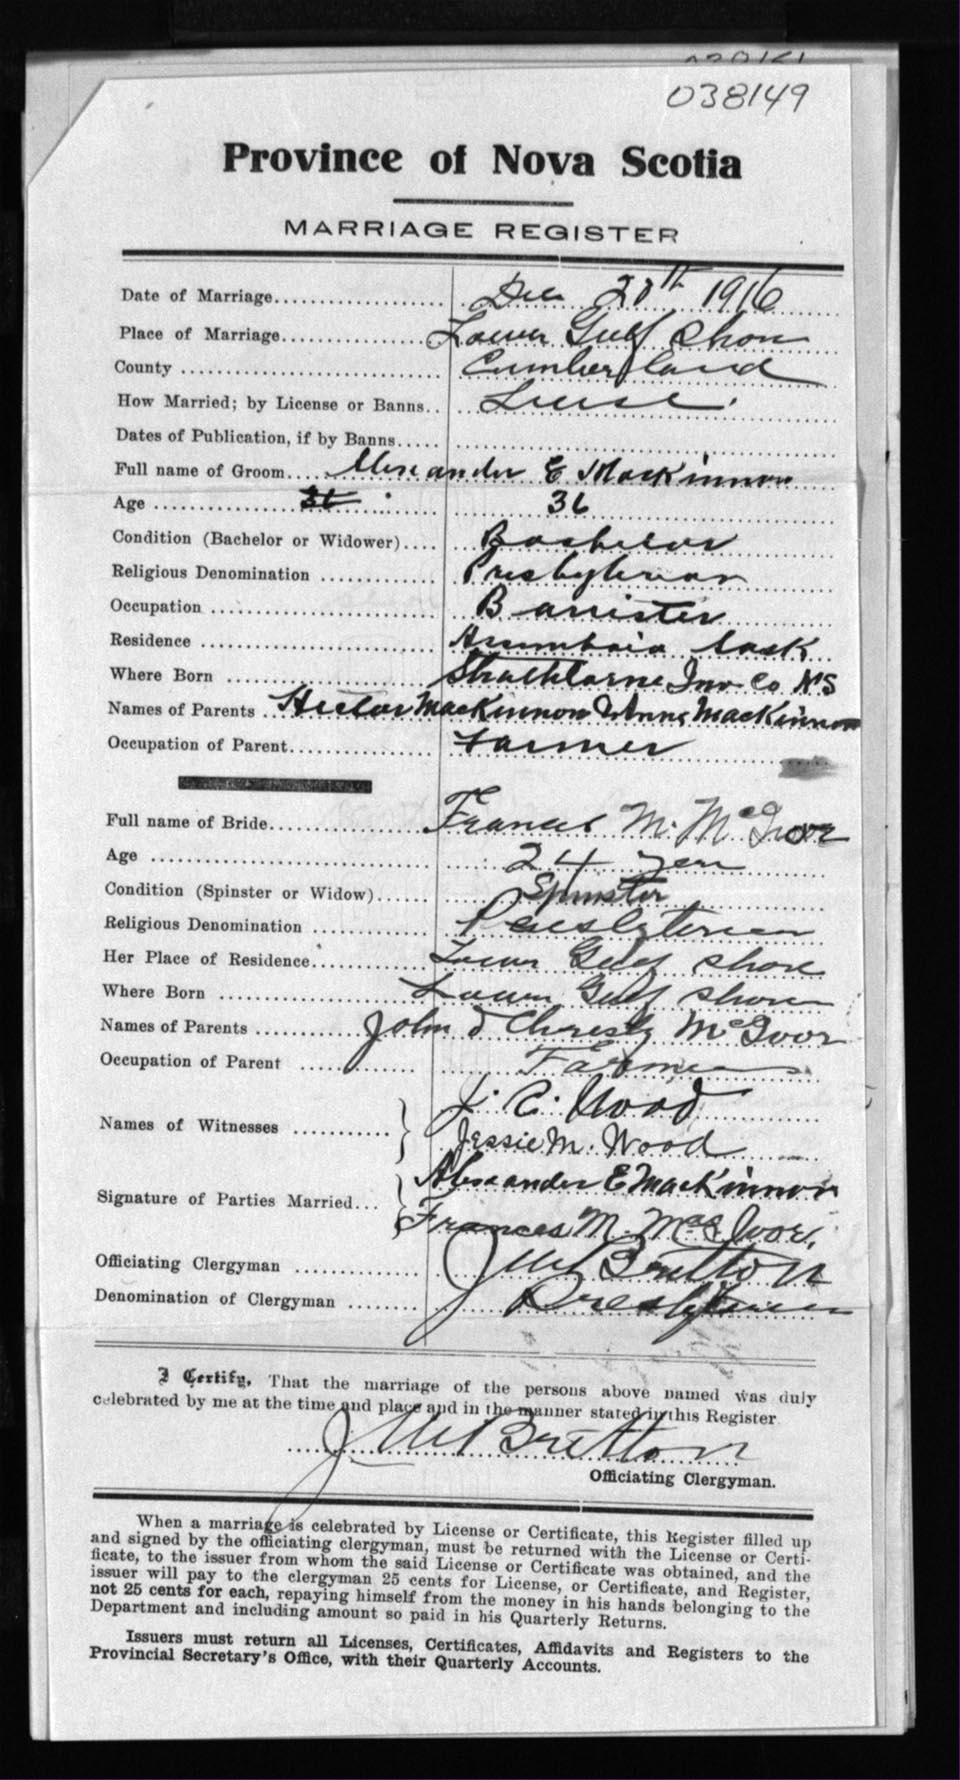 038149
Province of Nova Scotia
MARRIAGE REGISTER
Date of Marriage.................... Dec 20th 1916
Place of Marriage................ Lower Gulf Shore
County ............................ Cumberland
How Married; by License or Banns..
Dates of Publication, if by Banns.....
Full name of Groom.... Alexander E MacKinnon
Age ................ 36
Condition (Bachelor or Widower).... Bachelor
Religious Denomination ............ Presbyterian
Occupation ....................... Barrister
Residence ........................ Sask
Where Born ..................... Strathlorne Inv Co NS
Names of Parents Hector MacKinnon & Anna MacKinnon
Occupation of Parent.............. Farmer
Full name of Bride................ Frances M. McIvor
Age ............................ 24 years
Condition (Spinster or Widow)...... Spinster
Religious Denomination ............ Presbyterian
Her Place of Residence............ Lower Gulf Shore
Where Born ..................... Lower Gulf Shore
Names of Parents ............ John & Christy McIvor
Occupation of Parent ..... Farmer
Names of Witnesses ........... J. C. Wood
Jessie M. Wood
Signature of Parties Married... Alexander E MacKinnon
Frances M. McIvor.
Officiating Clergyman ............ Britton
Denomination of Clergyman ........ Presbyterian
I Certify, That the marriage of the persons above named was duly
celebrated by me at the time and place and in the manner stated in this Register
Britton
Officiating Clergyman.
When a marriage is celebrated by License or Certificate, this Register filled up
and signed by the officiating clergyman, must be returned with the License or Certi-
ficate, to the issuer from whom the said License or Certificate was obtained, and the
issuer will pay to the clergyman 25 cents for License, or Certificate, and Register,
not 25 cents for each, repaying himself from the money in his hands belonging to the
Department and including amount so paid in his Quarterly Returns.
Issuers must return all Licenses, Certificates, Affidavits and Registers to the
Provincial Secretary's Office, with their Quarterly Accounts.